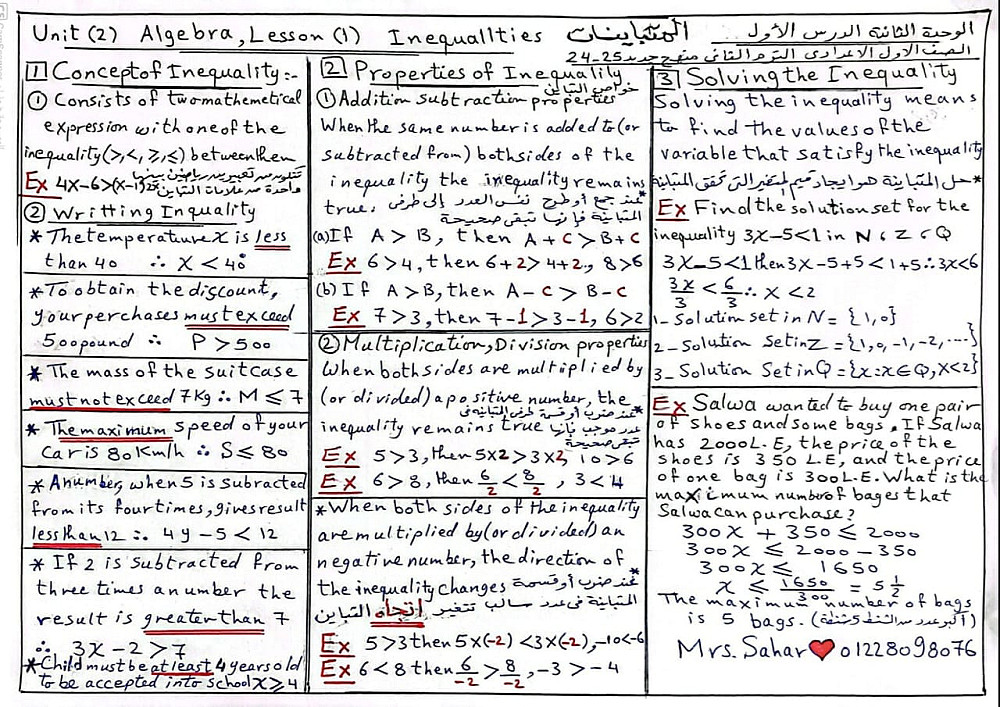 Unit (2) Algebra, Lesson (1) Inequallties المتباينات الوحدة الثانية الدرس الأول
الصف الأول الاعدادى الترم الثانى منهج جديد 25-24
1 Concept of Inequality:-
① Consists of two mathemetical
expression with one of the
inequality (>,<,⩾,⩽) between them
تتكون من تعبيرين رياضيين بينهما
Ex 4X-6>(X-1)25 واحدة من علامات التباين
② Writting Inquality
* The temperature X is less
than 40 ∴ X < 40°
* To obtain the discount,
your purchases must exceed
500 pound ∴ P > 500
* The mass of the suitcase
must not exceed 7Kg ∴ M ⩽ 7
* The maximum speed of your
Car is 80 Km/h ∴ S ⩽ 80
* A number, when 5 is subracted
from its four times, gives result
less than 12 ∴ 4y - 5 < 12
* If 2 is subtracted from
three times a number the
result is greater than 7
∴ 3X - 2 > 7
* Child must be at least 4 years old
to be accepted into school X ⩾ 4
2 Properties of Inequality
خواص التباين
① Addition subtraction properties
When the same number is added to (or
subtracted from) both sides of the
inequality the inequality remains
true. * عند جمع أو طرح نفس العدد إلى طرفى
المتباينة فإنها تبقى صحيحة
(a) If A > B, then A + C > B + C
Ex 6 > 4, then 6+2 > 4+2, 8 > 6
(b) If A > B, then A - C > B - C
Ex 7 > 3, then 7-1 > 3-1, 6 > 2
② Multiplication, Division properties
When both sides are multiplied by
(or divided) a positive number, the
inequality remains true * عند ضرب أو قسمة طرفى المتباينة فى
عدد موجب فإنها
تبقى صحيحة
Ex 5 > 3, then 5x2 > 3x2, 10 > 6
Ex 6 > 8, then 6/2 < 8/2, 3 < 4
* When both sides of the inequality
are multiplied by (or divided) an
negative number, the direction of
the inequality changes * عند ضرب أو قسمة
المتباينة فى عدد سالب تتغير إتجاه التباين
Ex 5 > 3 then 5x(-2) < 3x(-2), -10 < -6
Ex 6 < 8 then 6/-2 > 8/-2, -3 > -4
3 Solving the Inequality
Solving the inequality means
to find the values of the
variable that satisfy the inequality
* حل المتباينة هو ايجاد قيم المتغير التى تحقق المتباينة
Ex Find the solution set for the
inequality 3X-5<1 in N, Z, Q
3X-5<1 then 3X-5+5<1+5 ∴ 3X<6
3X/3 < 6/3 ∴ X < 2
1- Solution set in N = {1,0}
2- Solution Set in Z = {1,0,-1,-2,....}
3- Solution Set in Q = {X:X∈Q, X<2}
Ex Salwa wanted to buy one pair
of shoes and some bags. If Salwa
has 2000 L.E, the price of the
shoes is 350 L.E, and the price
of one bag is 300 L.E. What is the
maximum number of bages that
Salwa can purchase?
300X + 350 ⩽ 2000
300X ⩽ 2000 - 350
300X ⩽ 1650
X ⩽ 1650/300 = 5 1/2
The maximum number of bags
is 5 bags.
Mrs. Sahar ❤ 01228098076